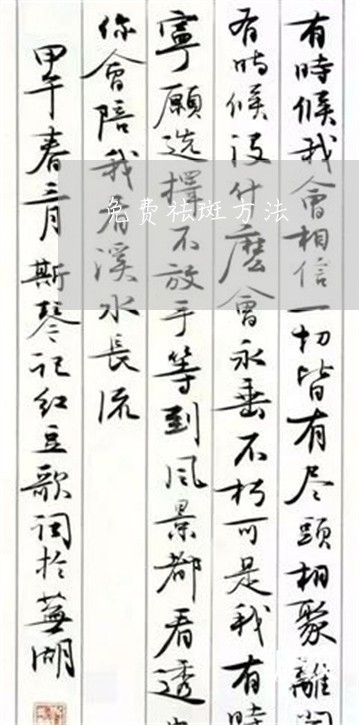 有時候我會相信一切皆有尽頭相聚離
有時候没什麽會永垂不朽可是我有時
寧願选擇不放手等到风景都看透
你會陪我看溪水長流
甲午春三月斯琴记红豆歌词於蕪湖
免费祛斑方法